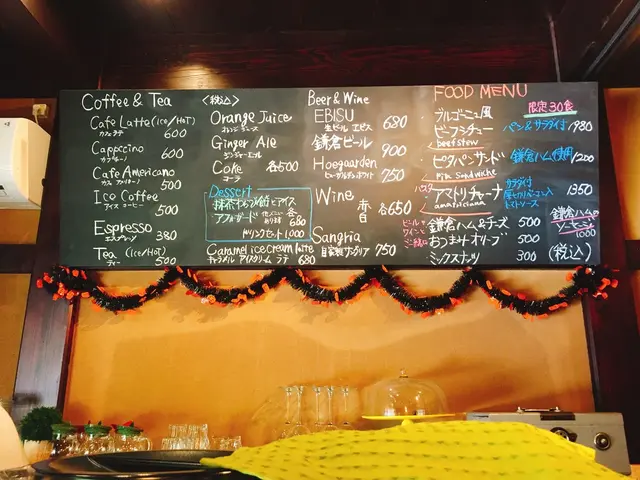 Coffee & Tea
Cafe Latte (ice/HOT)
カフェラテ 600
Cappccino
カプチーノ 600
Cafe Americano
カフェアメリカーノ 500
Ice Coffee
アイスコーヒー 500
Espresso
エスプレッソ 380
Tea (ice/HOT)
ティー 500
〈税込〉
Orange Juice
オレンジジュース
Ginger Ale
ジンジャーエール
Coke 各500
コーラ
Dessert
アフォガード 各680
ドリンクセット 1,000
Caramel ice cream latte
キャラメル アイスクリーム ラテ 680
Beer & Wine
EBISU
生ビール エビス 680
鎌倉ビール 900
Hoegaarden
ヒューガルデンホワイト 750
Wine
赤
白 各650
Sangria
自家製サングリア 750
FOOD MENU
限定30食
ブルゴーニュ風
ビーフシチュー パン&サラダ付 1980
beef stew
ピタパンサンド 鎌倉ハム使用 1200
Pita Sandwiche
パスタ
アマトリチャーナ サラダ付 1350
amatriciana
トマトソース
ビールや
ワインと
ご一緒に
鎌倉ハム&チーズ 500
おつまみオリーブ 500
ミックスナッツ 300
鎌倉ハムの
ソーセージ
1000
(税込)